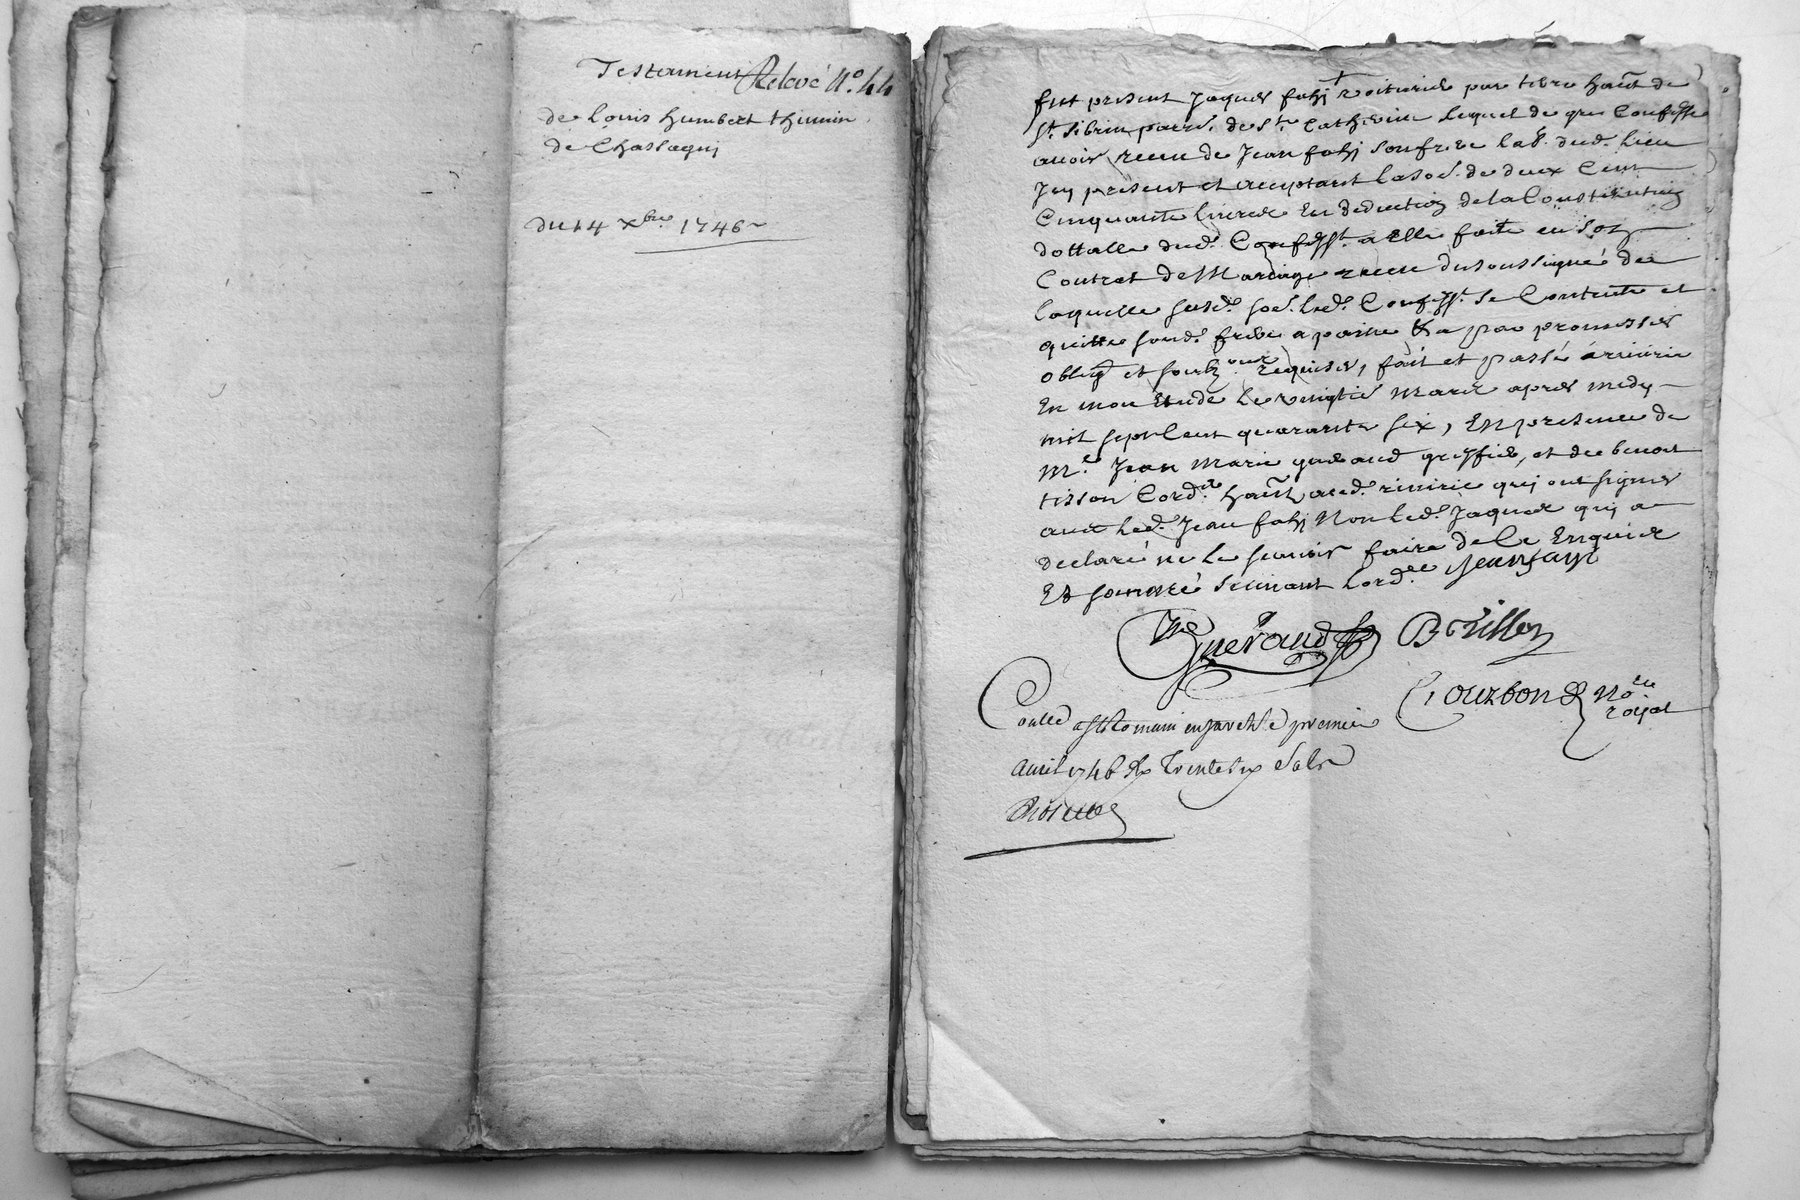 Testament Relevé N.o 44
de Louis humbert thiunin
de Chassagni
du 14 xbre. 1746
fut present Jaques fahj voiturier par terre ha̅t de
st. sibrin parr. de st. Catherine lequel de gre Confesse
avoir receu de Jean fahj son frere lab. dud. lieu
Jcy present et acceptant la so.e de deux Cent
Cinquante livres En deduction de la Constitution
dottalle dud. Confesst. a Elle faite en son
Contrat de Mariage receu du soussigné de
laquelle susd. soe. led. Confesst. se Contente et
quitte soud. frere a peine & a par promesses
oblig et requises, fait et passé a riuirie
En mon Etude le vingtie mars apres midy
mil sept Cent quarante six, En presence de
Me. Jean Marie gueraud greffier, et de benoit
tisson Cord.r ha̅t aud. riuirie qui ont signes
avec led. Jean fahj Non led. Jaques qui a
declaré ne le scavoir faire de ce Enquis
Et sommé suivant lord.ce Jean fayi
Gueraud B tisson
Courbon No.re
royal
Coullé a st Romain en jarest le premier
Avril 1746 Rx Trente six sols